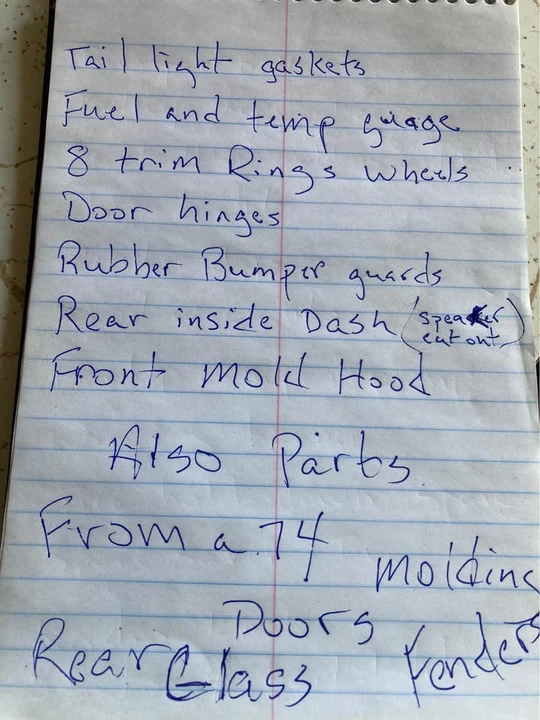 Tail light gaskets
Fuel and temp guage
8 trim Rings wheels
Door hinges
Rubber Bumper guards
Rear inside Dash (speaker cut out)
Front mold Hood
Also Parts
From a 74
molding
Doors
Rear Glass
fenders